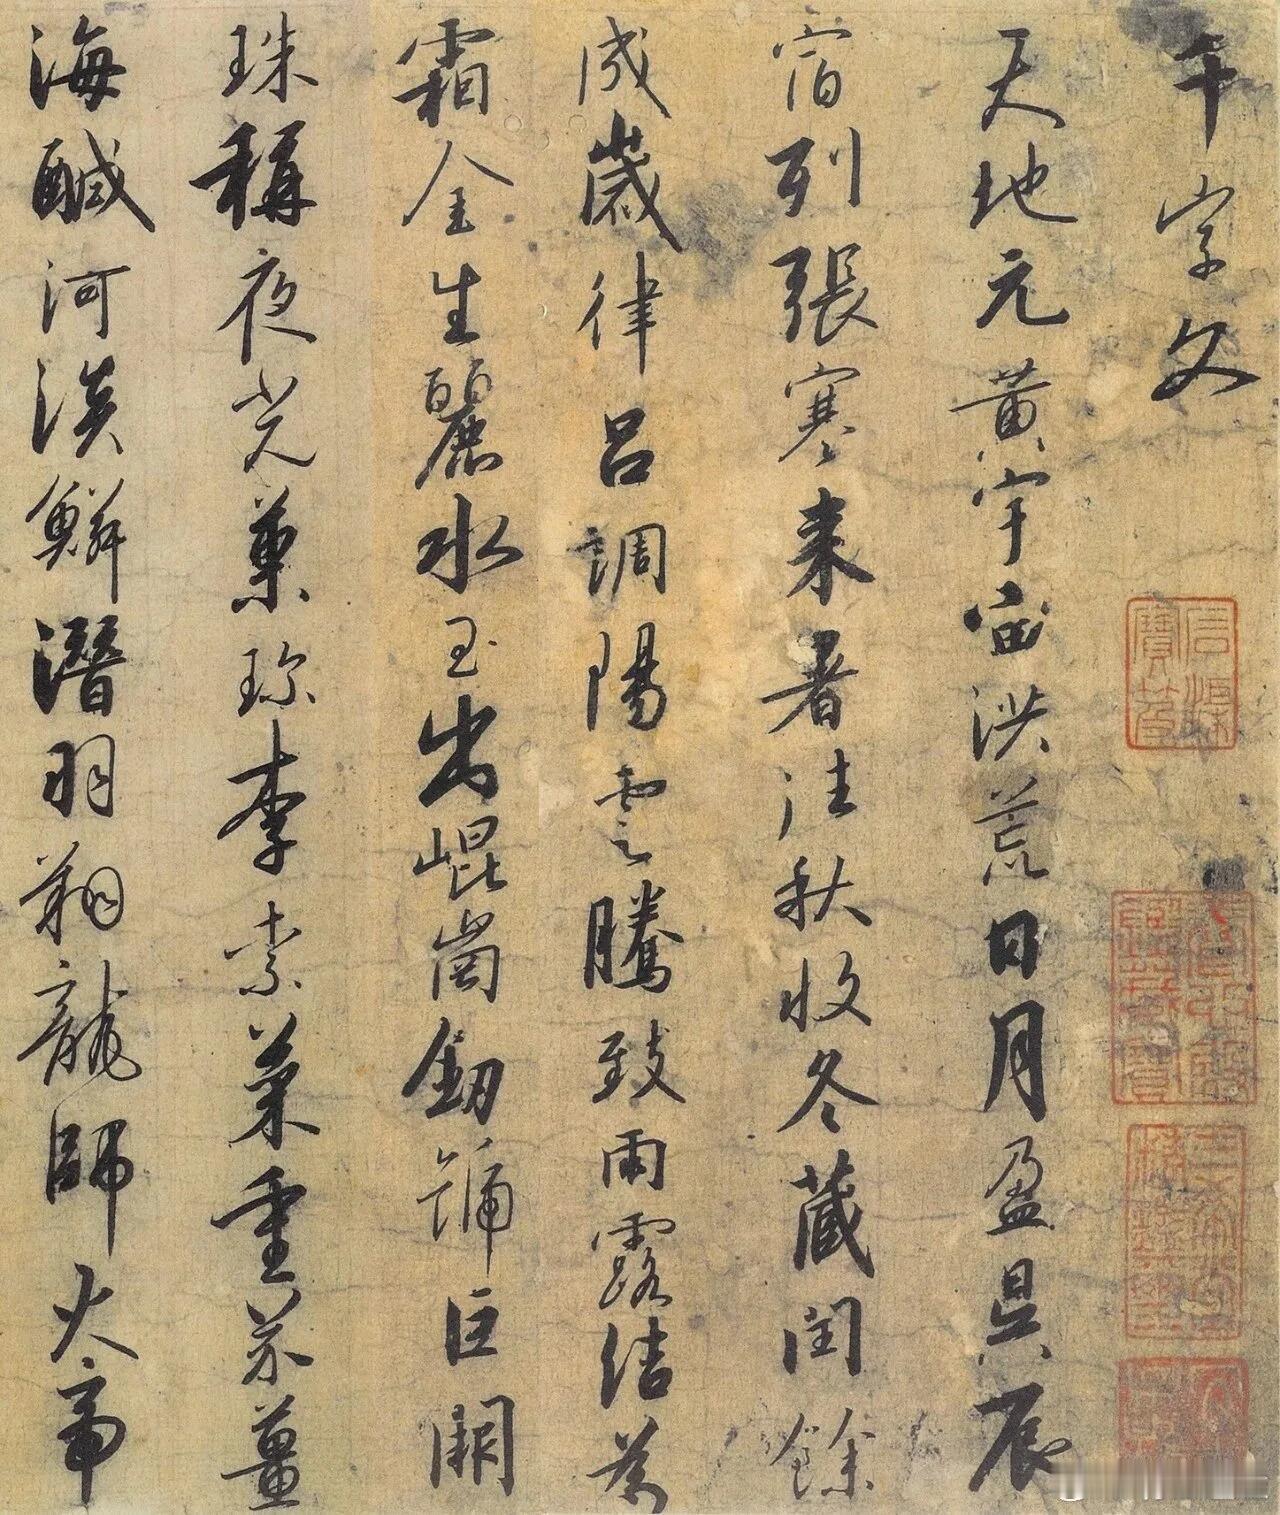 千字文
天地元黃宇宙洪荒日月盈昃辰
宿列張寒来暑往秋收冬藏閏餘
成歲律呂調陽雲騰致雨露結為
霜金生麗水玉出崐崗釼號巨闕
珠稱夜光菓珍李柰菜重芥薑
海醎河淡鱗潛羽翔龍師火帝